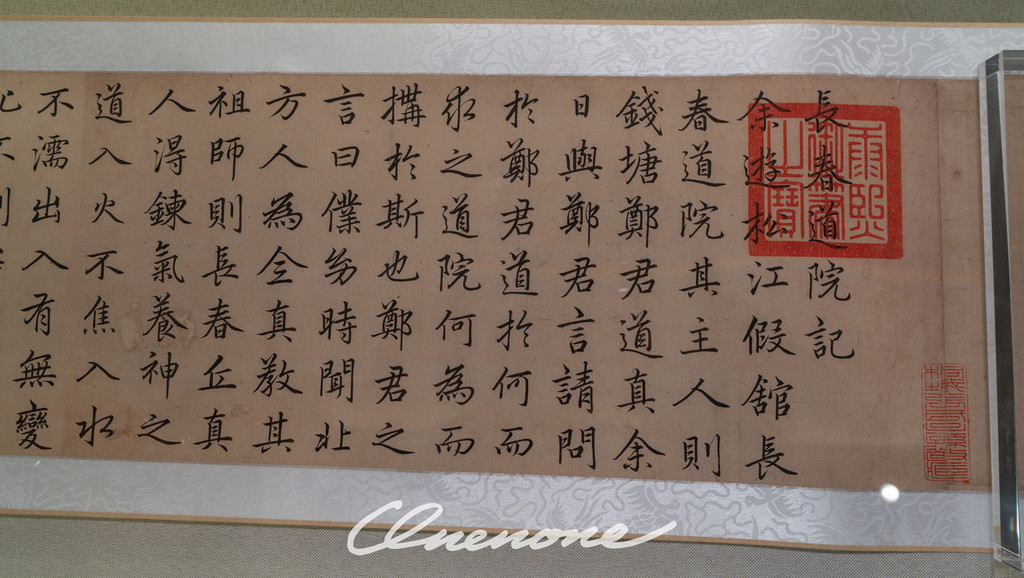 長春道院記
余遊松江假舘長
春道院其主人則
錢塘鄭君道真余
日與鄭君言請問
於鄭君道於何而
求之道院何為而
搆於斯也鄭君之
言曰僕㓜時聞北
方人為仝真教其
祖師則長春丘真
人得鍊氣養神之
道入火不焦入水
不濡出入有無變